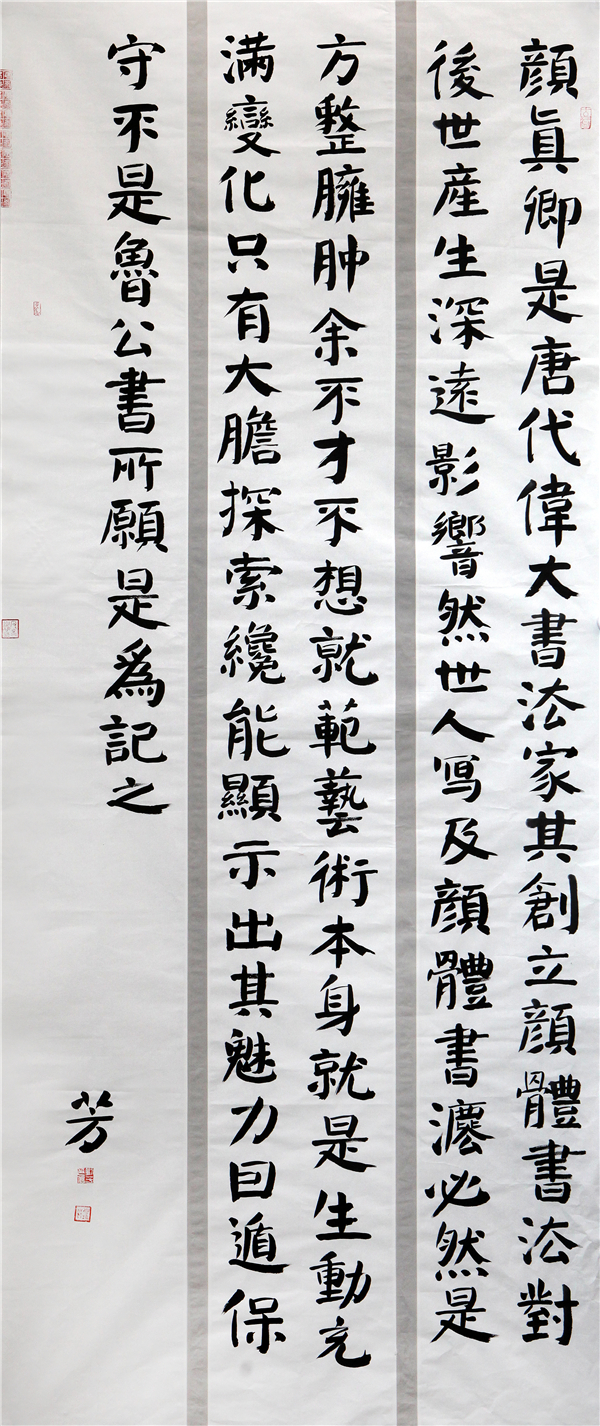 顔眞卿是唐代偉大書法家其創立顔體書法對
後世産生深遠影響然世人写及顔體書灋必然是
方整臃肿余不才不想就範藝術本身就是生動充
满變化只有大膽探索纔能顯示出其魅力曰遁保
守不是魯公書所願是為記之
芳